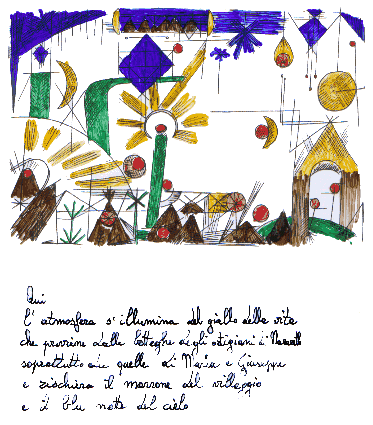 Qui
l' atmosfera s' illumina del giallo della vita
che proviene dalle botteghe degli artigiani di Nazareth
soprattutto da quelle di Maria e Giuseppe
e rischiara il marrone del villaggio
e il blu notte del cielo